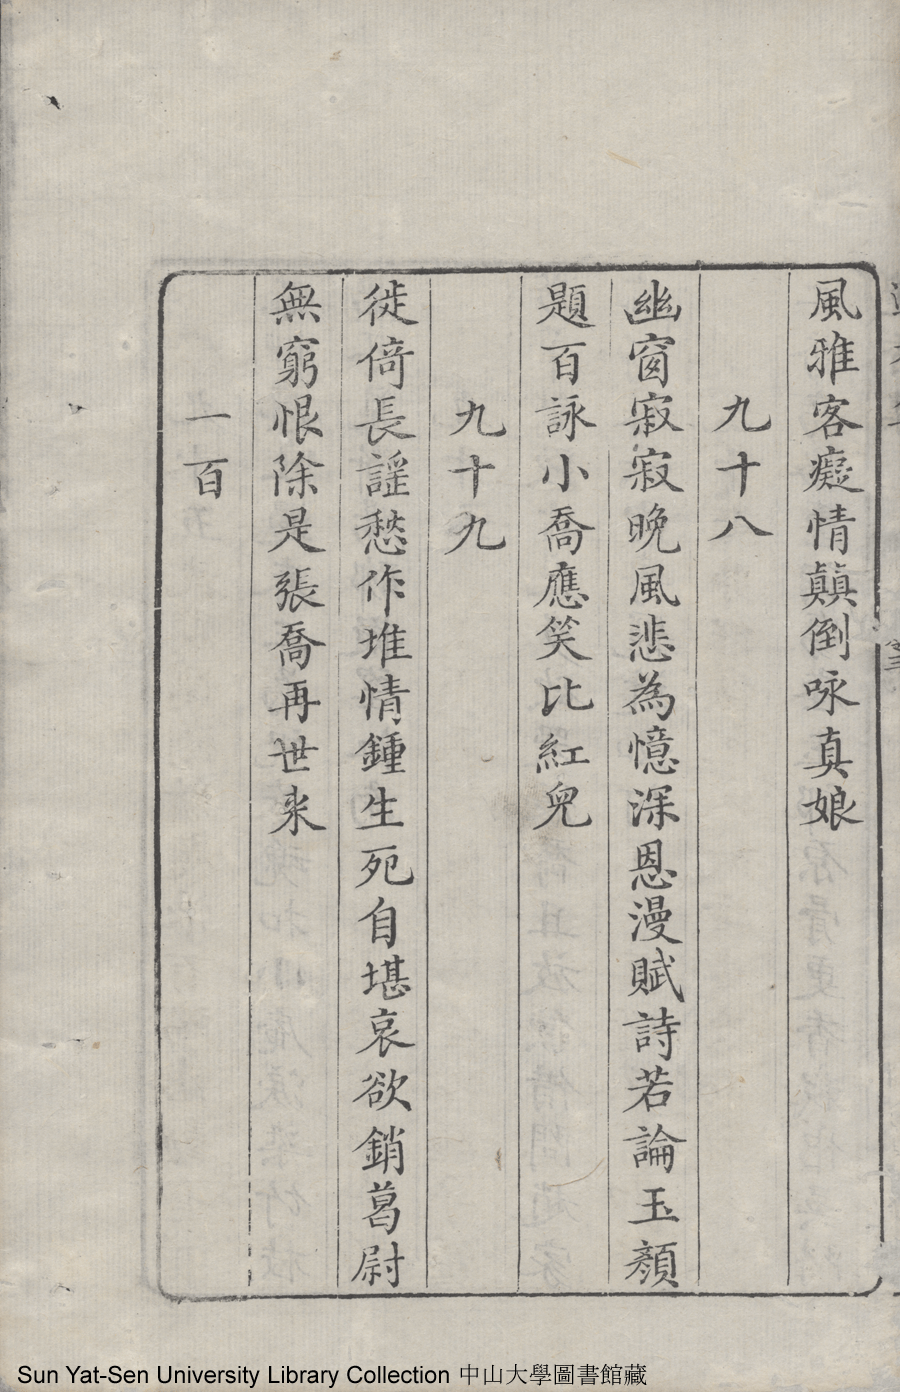 風雅客癡情顛倒咏真娘
九十八
幽窗寂寂晚風悲為憶深恩漫賦詩若論玉顏
題百詠小喬應笑比紅兒
九十九
徙倚長謡愁作堆情鍾生死自堪哀欲銷葛尉
無窮恨除是張喬再世来
一百
Sun Yat-Sen University Library Collection 中山大學圖書館藏